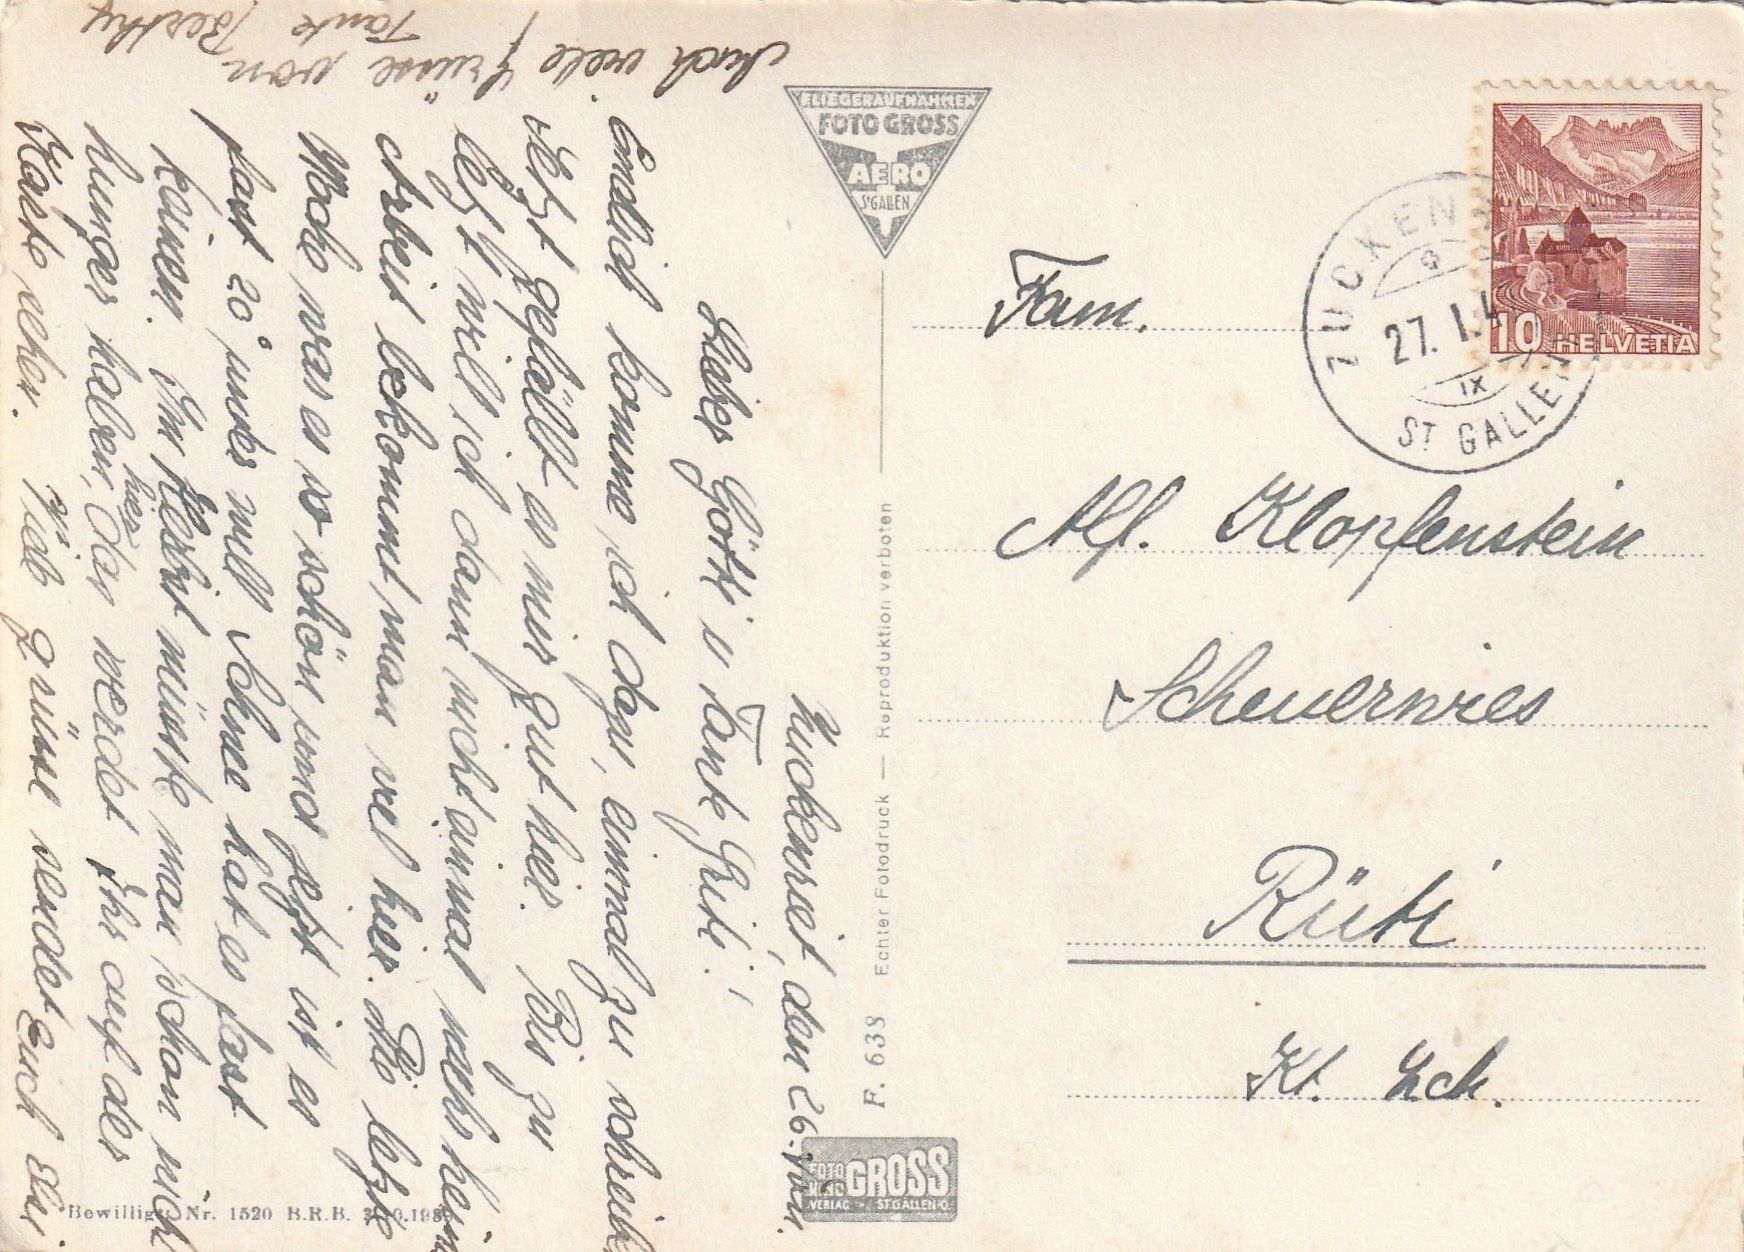 FLIEGERAUFNAHMEN
FOTO GROSS
AERO
ST GALLEN
10 HELVETIA
ZUCKENR
27. I. 4
IX
ST GALLEN
Fam.
Alf. Klopfenstein
Scheuerwies
Rüti
Kt. Zch.
Zuckenriet, den 26. Jan.
Liebes Götti u Tante Griti!
Endlich komme ich dazu, einmal zu schreib
Jetzt gefällt es mir gut hier. Bis zu
letzt will ich dann nicht einmal mehr heim
Arbeit bekommt man viel hier. Die letzte
Woche war es so schön und jetzt ist es
fast 20° unter null Schnee hat es fast
keinen. Im Herbst müsste man schon nicht
hunger haben hier, das werdet Ihr auf der
Karte sehen. Viele grüsse sendet Euch
Auch viele Grüsse von
Tante Berthy
F. 638 Echter Fotodruck — Reproduktion verboten
FOTO
GROSS
VERLAG ST.GALLEN O.
Bewillig. Nr. 1520 B.R.B. 3.10.1939